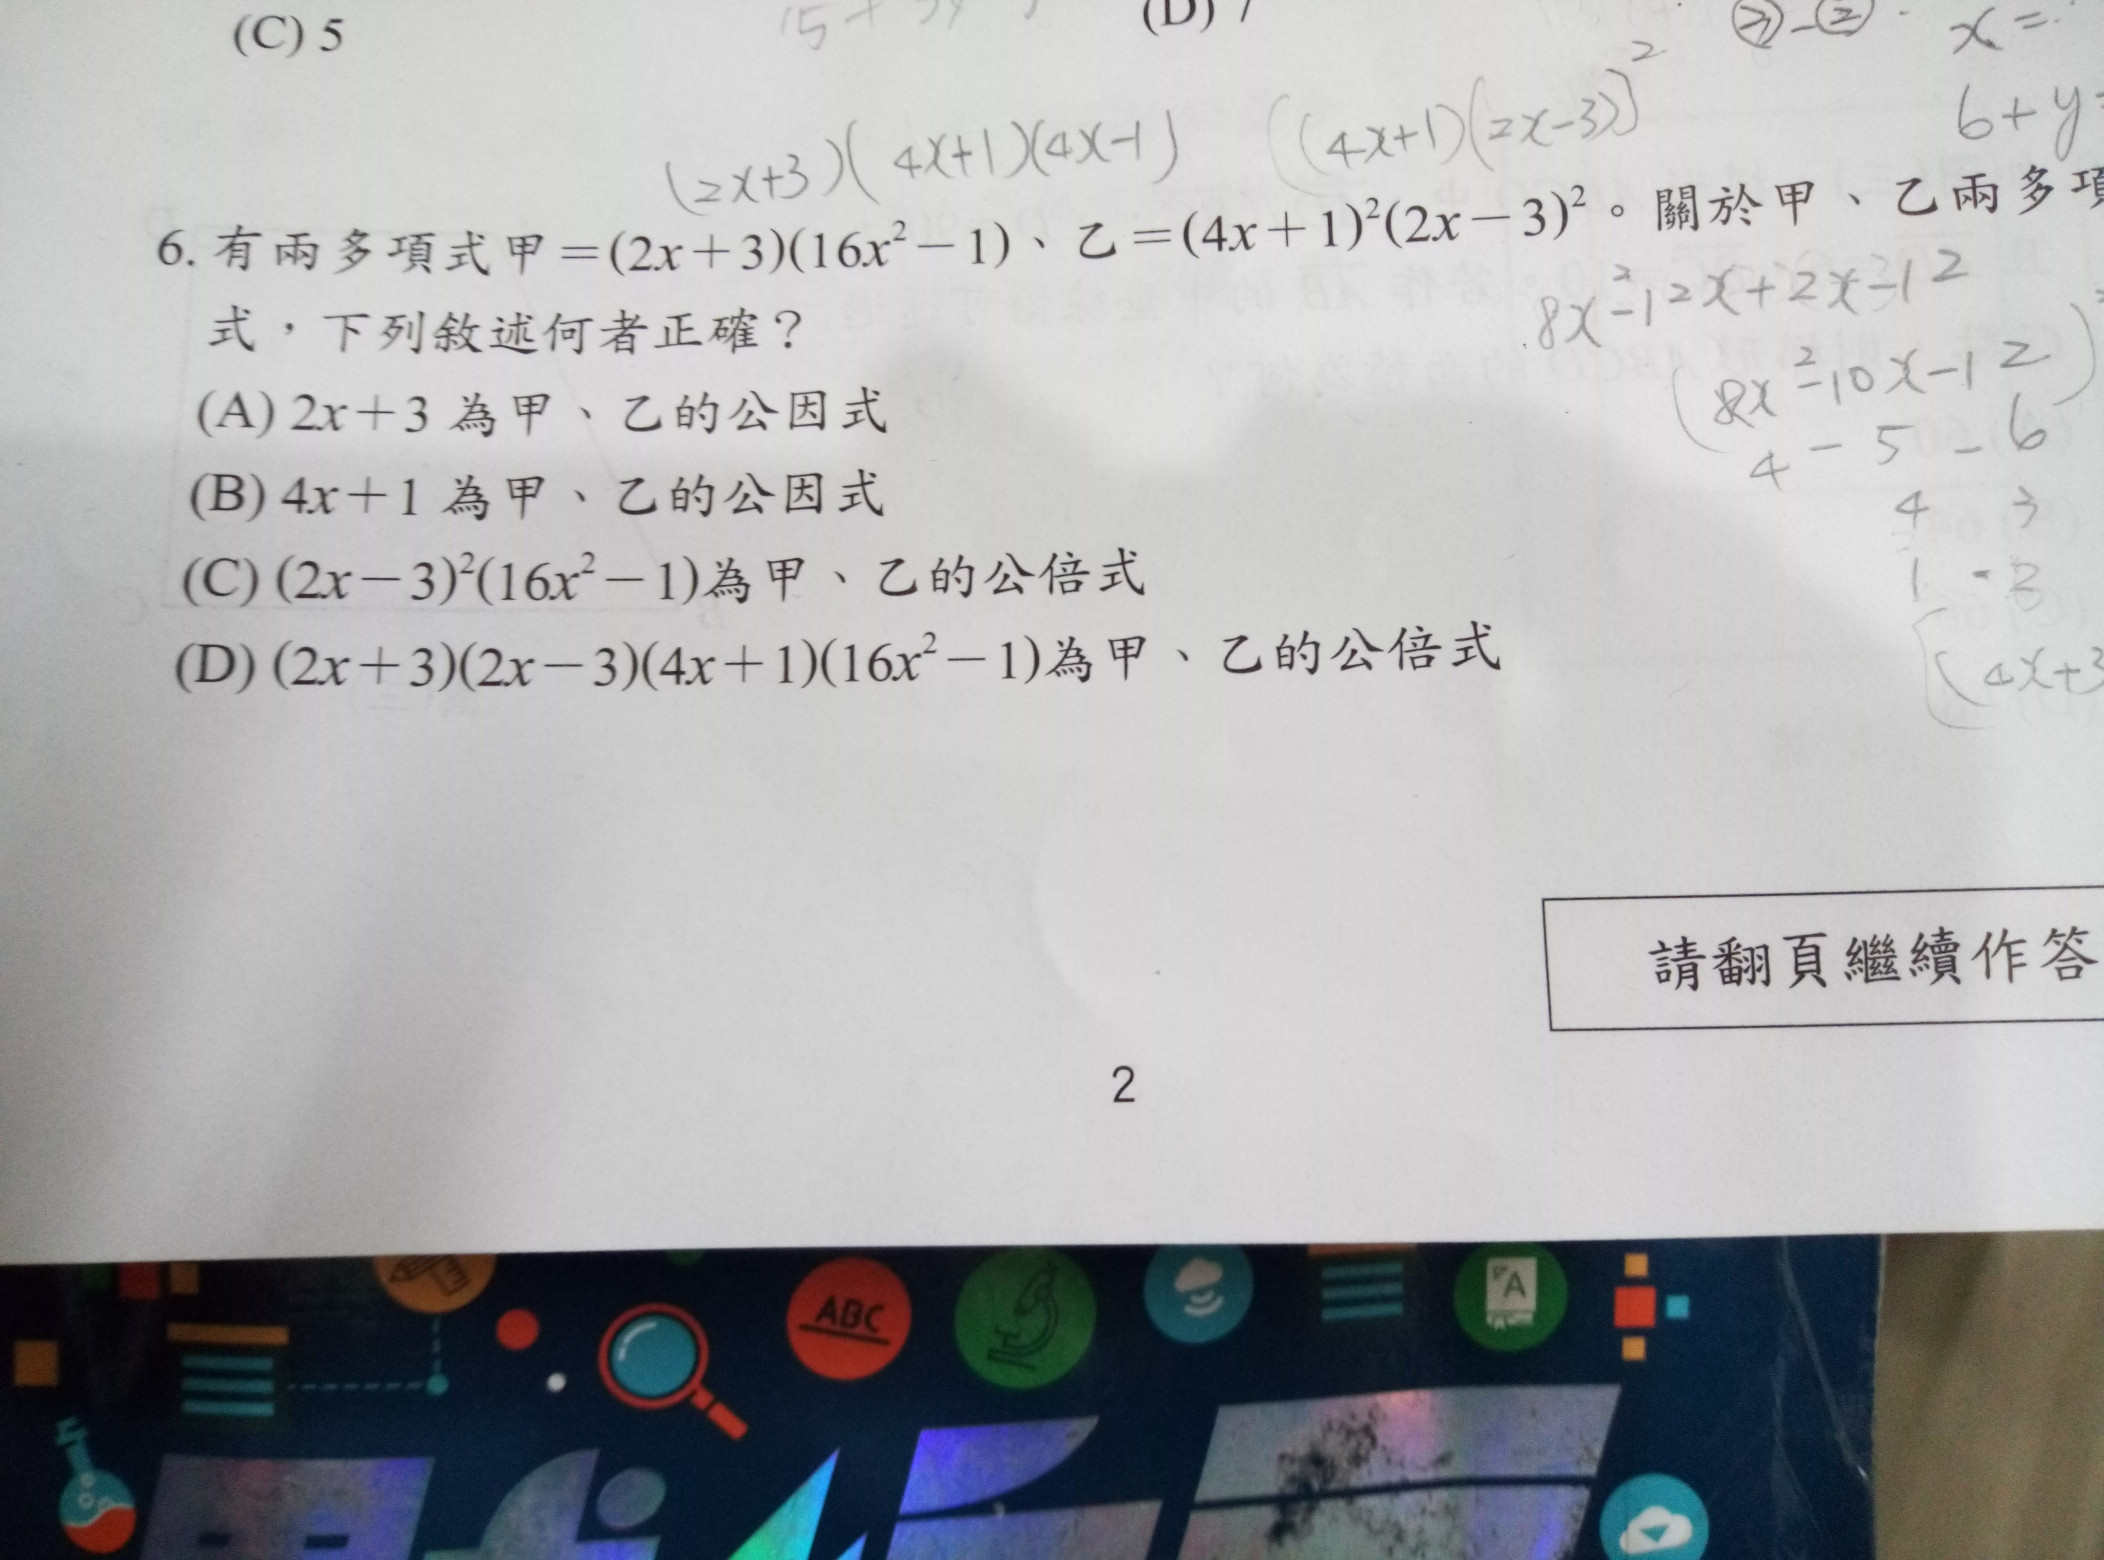 (C) 5
(D) 7
③-② x=
6+y=
(2x+3)(4x+1)(4x-1) ((4x+1)(2x-3))²
6. 有兩多項式甲=(2x+3)(16x²-1)、乙=(4x+1)²(2x-3)²。關於甲、乙兩多項
式,下列敘述何者正確?
(A) 2x+3 為甲、乙的公因式
(B) 4x+1 為甲、乙的公因式
(C) (2x-3)²(16x²-1)為甲、乙的公倍式
(D) (2x+3)(2x-3)(4x+1)(16x²-1)為甲、乙的公倍式
8x²-12x+2x-12
(8x²-10x-12)
4-5-6
4 3
1 -2
(4x+3
請翻頁繼續作答
2
ABC
A